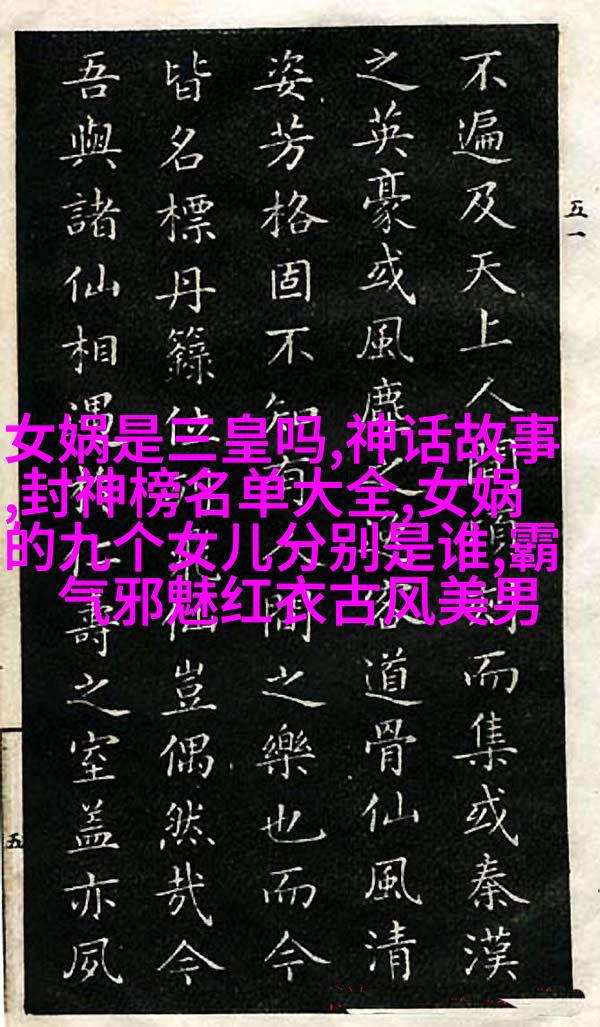 五一
不遍及天上人間而集或秦漢
之英豪或風塵之道骨仙風清
姿芳格固不知有人間之樂也而今
皆名標丹籙位仙豈偶然哉今
吾與諸仙相遇於仁壽之室蓋亦夙
五
女娲是三皇吗,神话故事
,封神榜名单大全,女娲
的九个女儿分别是谁,霸
气邪魅红衣古风美男